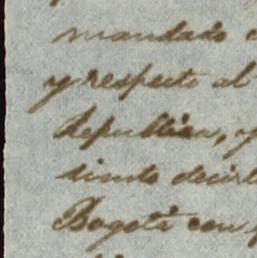 mandado
y respecto al
Republica, y
siendo decirl
Bogotá con